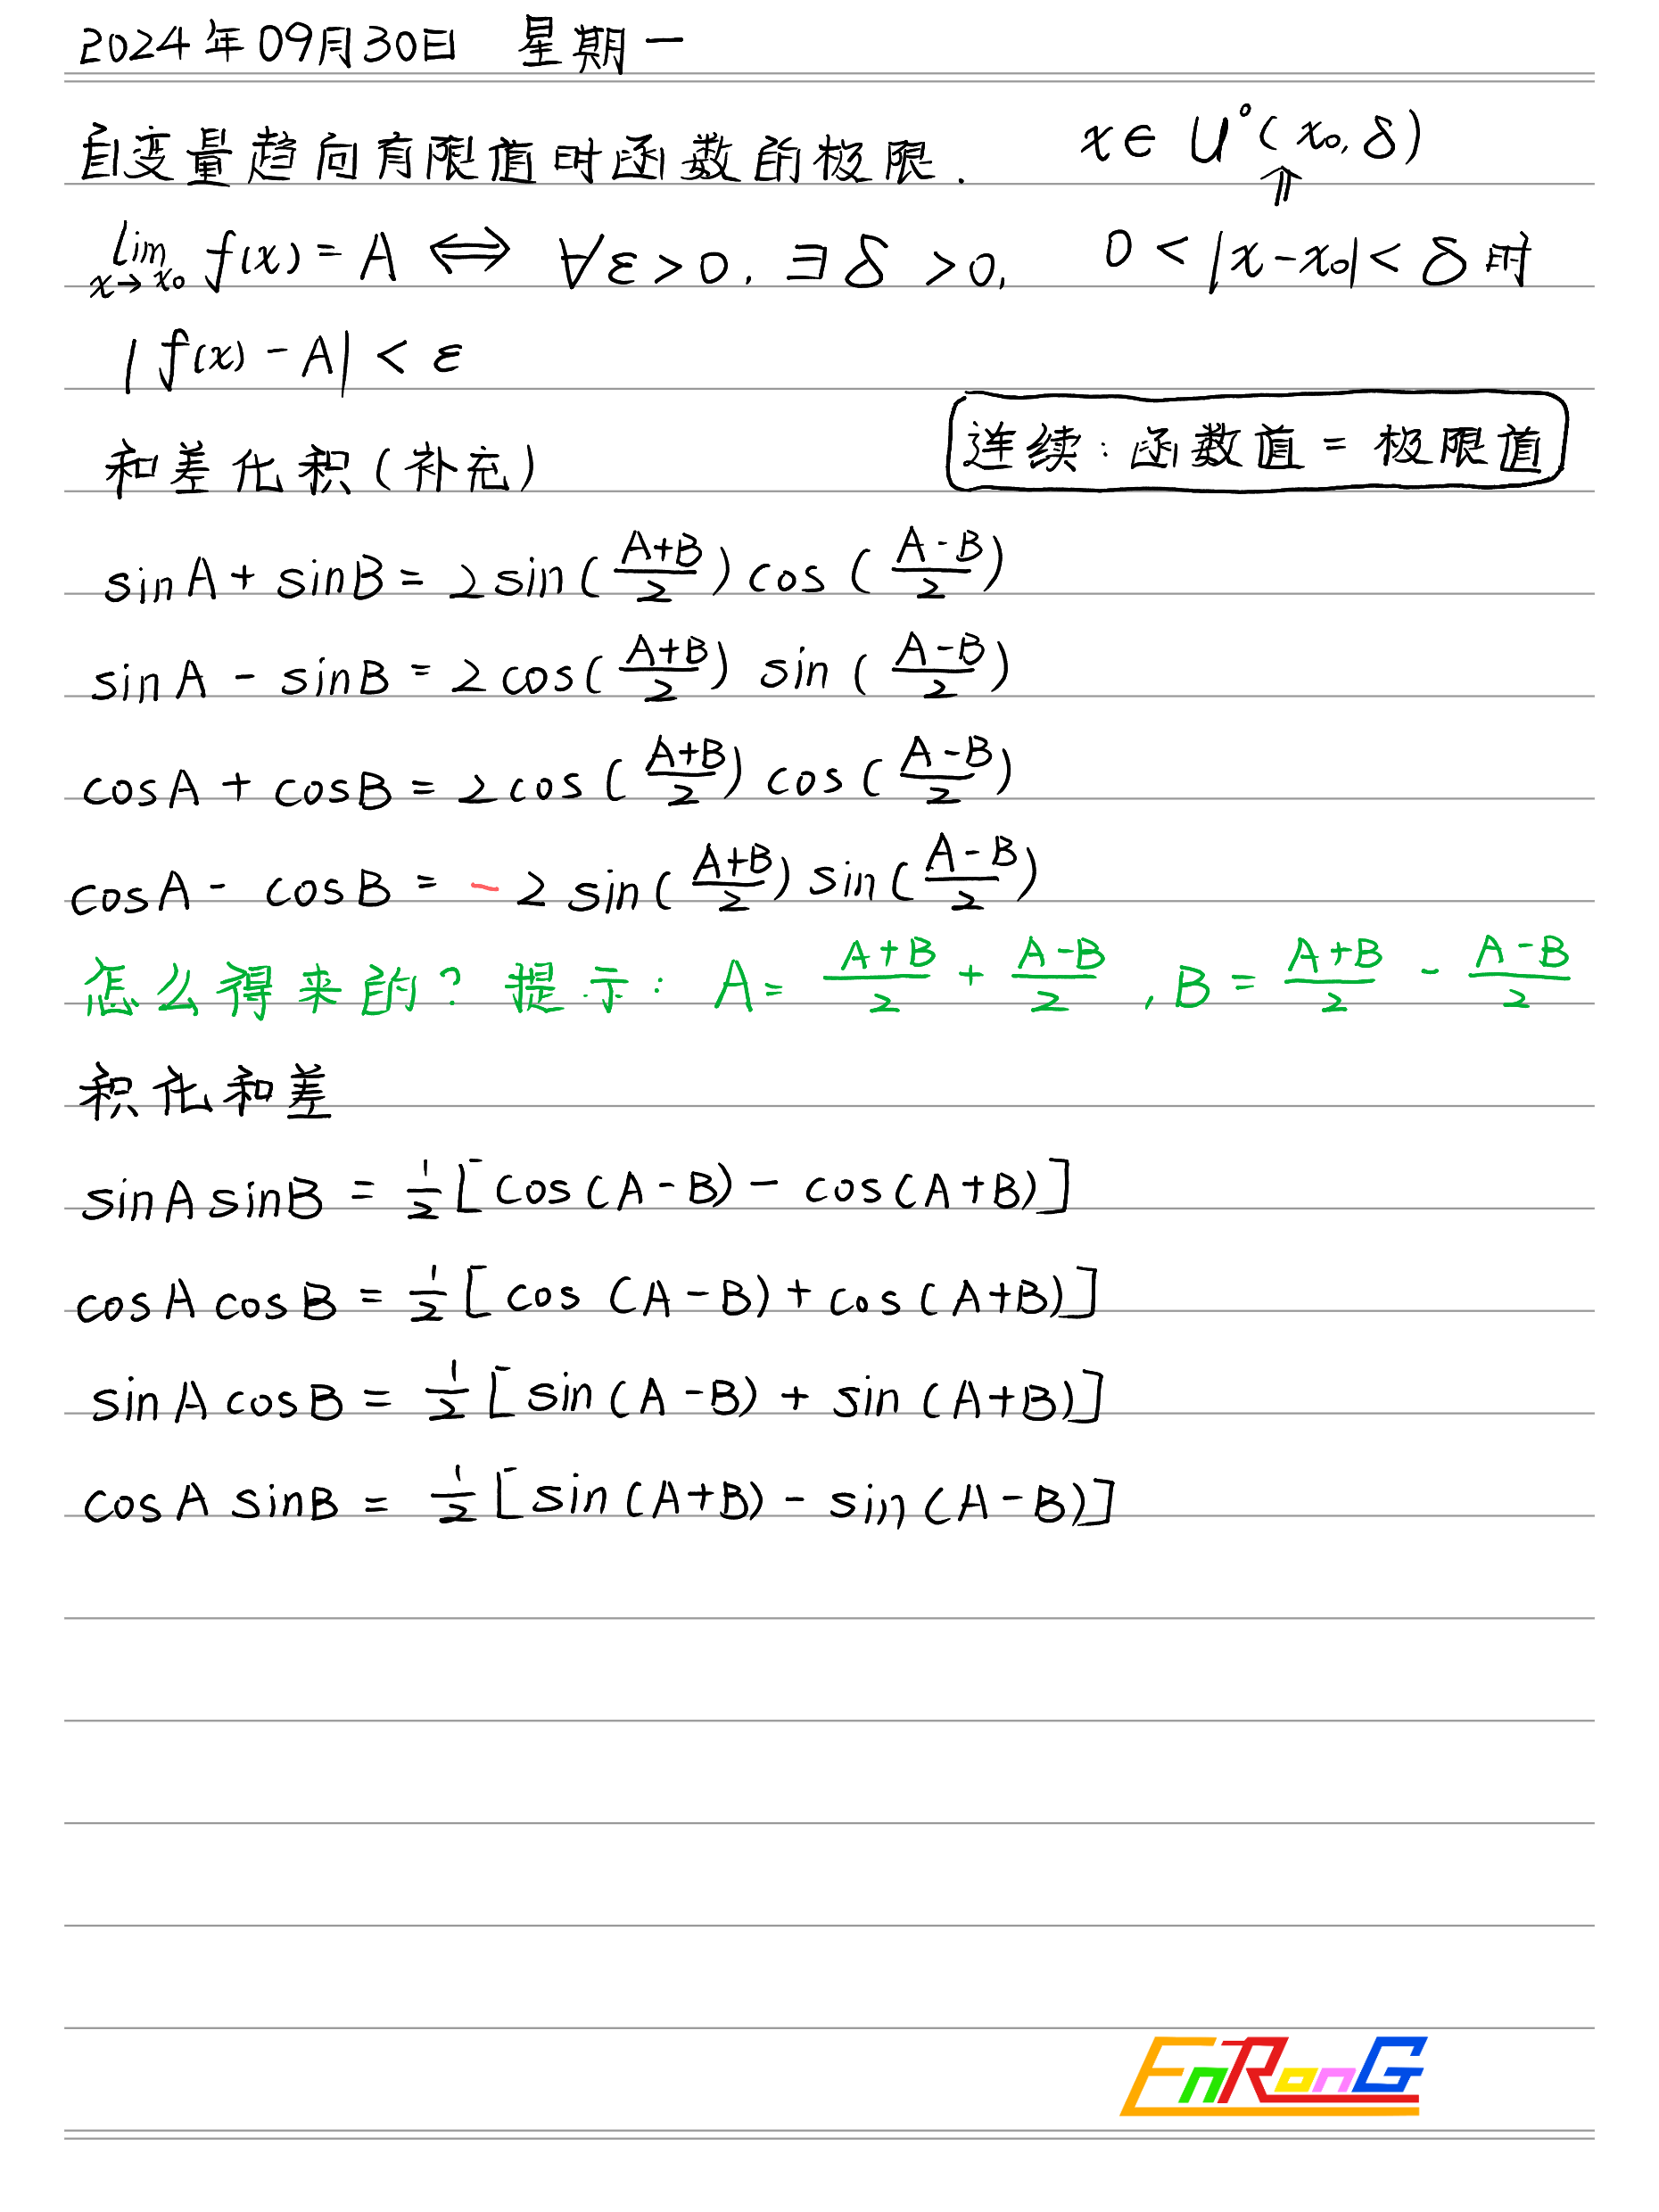 2024年09月30日 星期一
自变量趋向有限值时函数的极限. x∈U°(x₀,δ)
⇑
lim x→x₀ f(x)=A ⟺ ∀ε>0, ∃δ>0, 0<|x-x₀|<δ时
|f(x)-A|<ε
和差化积(补充) 连续:函数值=极限值
sinA+sinB=2sin((A+B)/2)cos((A-B)/2)
sinA-sinB=2cos((A+B)/2)sin((A-B)/2)
cosA+cosB=2cos((A+B)/2)cos((A-B)/2)
cosA-cosB=-2sin((A+B)/2)sin((A-B)/2)
怎么得来的?提示: A=(A+B)/2+(A-B)/2, B=(A+B)/2-(A-B)/2
积化和差
sinAsinB=1/2[cos(A-B)-cos(A+B)]
cosAcosB=1/2[cos(A-B)+cos(A+B)]
sinAcosB=1/2[sin(A-B)+sin(A+B)]
cosAsinB=1/2[sin(A+B)-sin(A-B)]
EnRonG